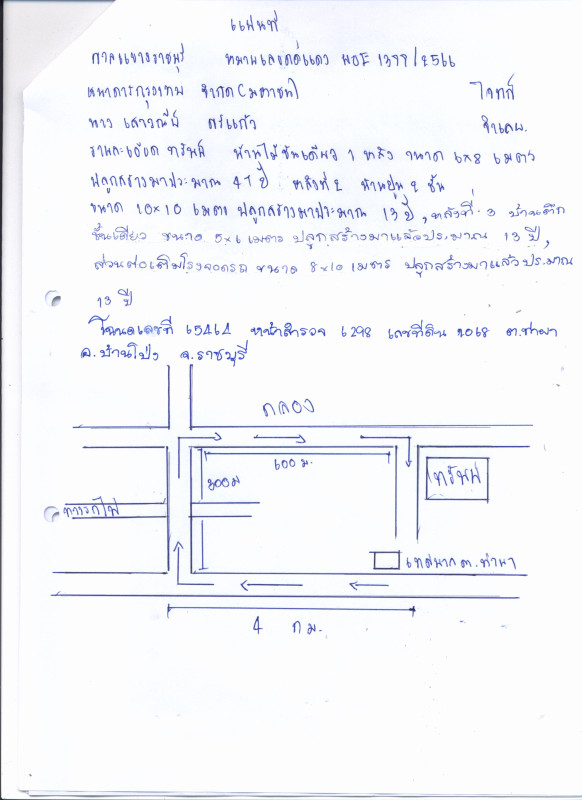 แผนที่
ศาลแขวงราชบุรี หมายเลขคดีแดง ผบE 1399/2566
ธนาคารกรุงเทพ จำกัด (มหาชน) โจทก์
นาง เสาวณีย์ ตรีแก้ว จำเลย.
รายละเอียด ทรัพย์ บ้านไม้ชั้นเดียว 1 หลัง ขนาด 6x8 เมตร
ปลูกสร้างมาประมาณ 47 ปี หลังที่ 2 บ้านปูน 2 ชั้น
ขนาด 10x10 เมตร ปลูกสร้างมาประมาณ 13 ปี, หลังที่ 3 บ้านตึก
ชั้นเดียว ขนาด 5x6 เมตร ปลูกสร้างมาแล้วประมาณ 13 ปี,
ส่วนต่อเติมโรงจอดรถ ขนาด 8x10 เมตร ปลูกสร้างมาแล้วประมาณ
13 ปี
โฉนดเลขที่ 65464 หน้าสำรวจ 6298 เลขที่ดิน 2068 ต.ท่าผา
อ.บ้านโป่ง จ.ราชบุรี
คลอง
600 ม.
300 ม
ทรัพย์
ทางรถไฟ
4 กม.